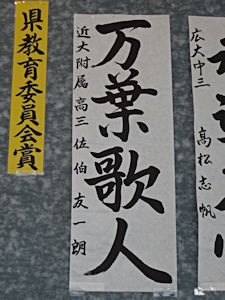 県教育委員会賞
万葉歌人
近大附属高三 佐伯友一朗
広大中三 高松志帆